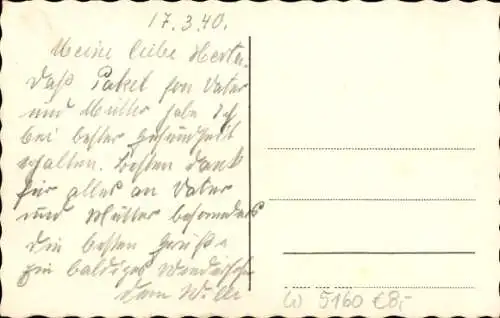 17.3.40.
Meine liebe Herta.
Daß Paket fon Vater
und Mutter habe Ich
bei bester gesundheit
erhalten. Besten Dank
für alles an Vater
und Mutter besonders
die besten Grüße
ein baldiges Wiedersehn
dein Willi
W 5160 €8,-